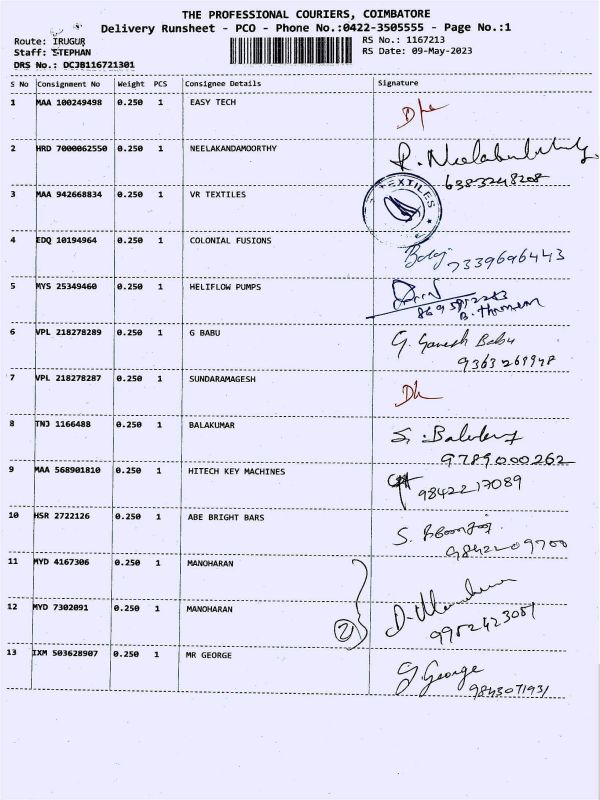 THE PROFESSIONAL COURIERS, COIMBATORE
Delivery Runsheet - PCO - Phone No.:0422-3505555 - Page No.:1
Route: IRUGUR
RS No.: 1167213
Staff: STEPHAN
RS Date: 09-May-2023
DRS No.: DCJB116721301
S No Consignment No Weight PCS Consignee Details Signature
1 MAA 100249498 0.250 1 EASY TECH
2 HRD 7000062550 0.250 1 NEELAKANDAMOORTHY
6383248208
3 MAA 942668834 0.250 1 VR TEXTILES
TEXTILES
4 EDQ 10194964 0.250 1 COLONIAL FUSIONS
Balaji 7339696443
5 MYS 25349460 0.250 1 HELIFLOW PUMPS
6 VPL 218278289 0.250 1 G BABU G. Ganesh Babu
9363269948
7 VPL 218278287 0.250 1 SUNDARAMAGESH
8 TNJ 1166488 0.250 1 BALAKUMAR
9789000262
9 MAA 568901810 0.250 1 HITECH KEY MACHINES
9842217089
10 HSR 2722126 0.250 1 ABE BRIGHT BARS
9842209700
11 MYD 4167306 0.250 1 MANOHARAN
12 MYD 7302091 0.250 1 MANOHARAN
2
9952423051
13 IXM 503628907 0.250 1 MR GEORGE G. George
9843071931